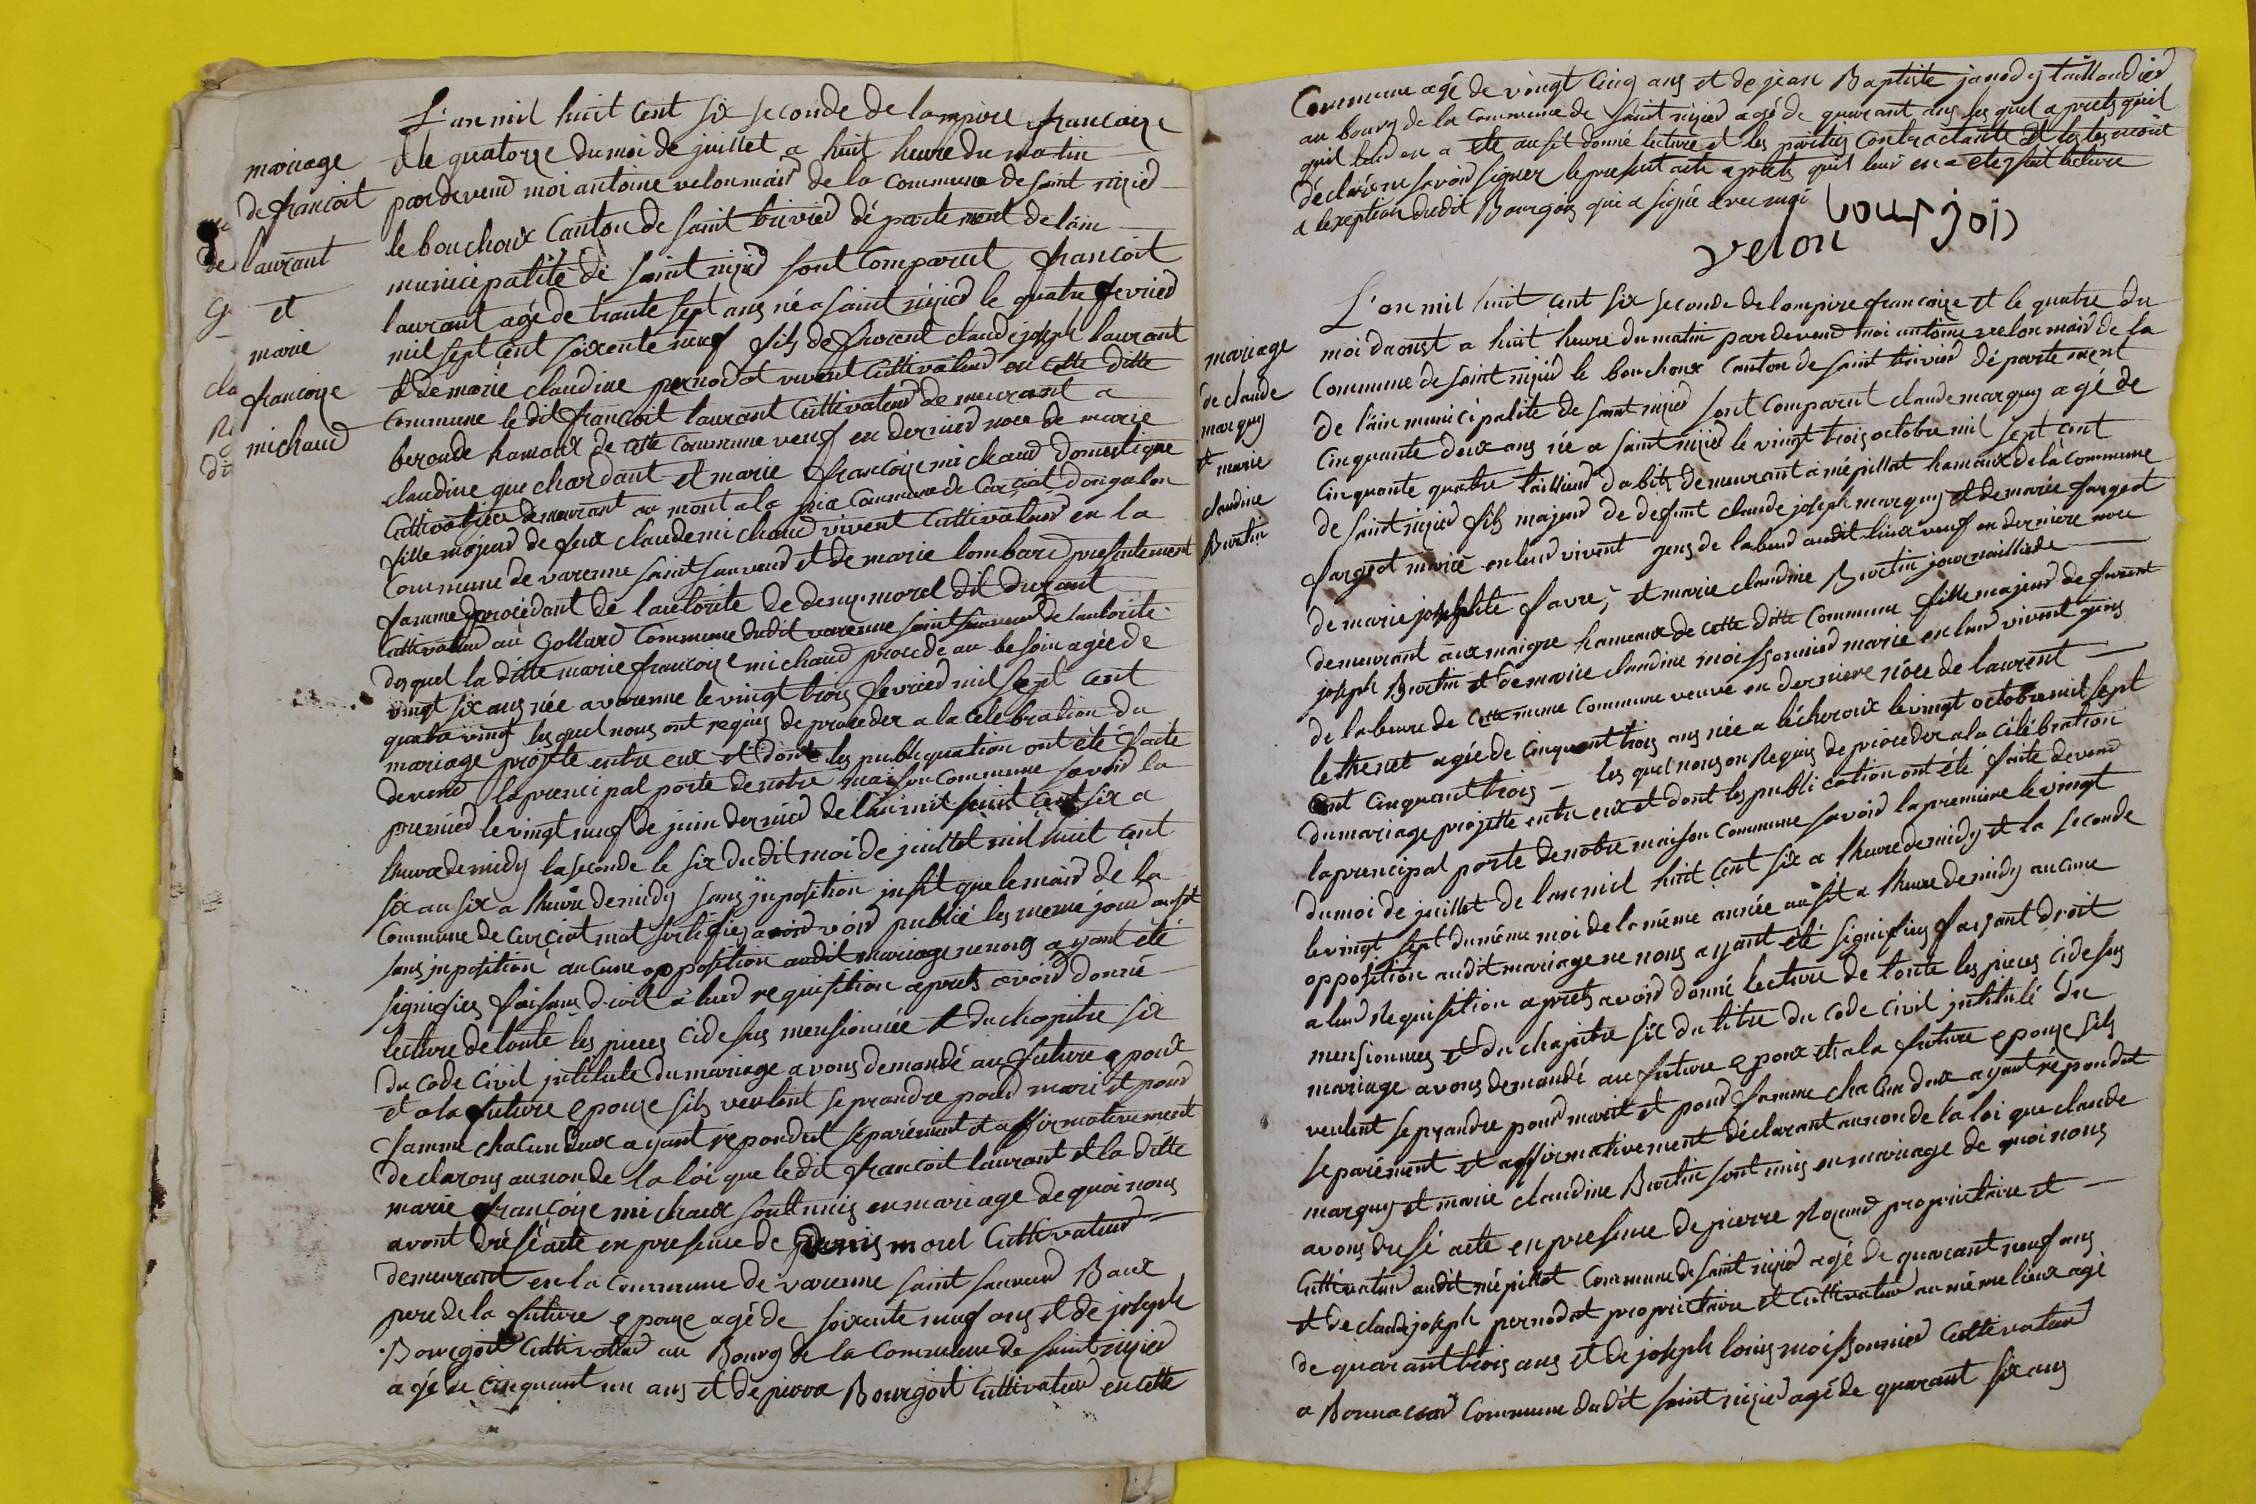 mariage
de francoit
laurant
et
marie
francoize
michaud
L'an mil huit cent six seconde de lampire francaize
& le quatorze du moi de juillet a huit heure du matin
pardevend moi antoine velon maird de la commune de saint nizied
le bouchoux canton de saint trivied departement de lain
municipalité de saint nizied sont comparut francoit
laurant agé de trante sept ans né a saint nizied le quatre fevried
mil sept cent soixente neuf fils de fivent claude joseph laurant
& de marie claudine pernodot vivent cultivateud en cette ditte
commune le dit francoit laurant cultivateud demeurant a
beronde hamaux de cette commune veuf en dernied noce de marie
claudine que chardant et marie francoize michaud domestique
cultivatrice demeurant au mont a la commune de Curciat dongalon
fille majeud de feux claude michaud vivent cultivateud en la
commune de varenne saint sauveud et de marie lombard presentement
famme procédant de lautorite de deny morel dit durant
cultivateud au Gollard commune dudit varenne saint sauveud de lautorité
duquel la ditte marie francoize michaud procede au besoin agée de
vingt six ans née a varenne le vingt trois fevried mil sept cent
quatre vingt les quel nous ont requis de proceder a la célébration du
mariage projette entre eux et dont les publiquation ont été faite
devend la prencipal porte de notre maison commune savoid la
premied le vingt neuf de juin dernied de lan mil huit cent six a
lheure de midy la seconde le six dudit moi de juillet mil huit cent
six au six a lheure de midy sans inposition insit que le maird de la
commune de Curciat mat sertifiez avoid publié les meme joud ausit
sans inposition aucune opposition audit mariage ne nous ayant été
signifiez faisans droit a leud requisition aprets avoid donné
lecture de toute les pieces cidesus mensionnée & du chapitre six
du code civil intitule du mariage avons demandé au future epoux
et a la future epouze sils veulent se prandre pour mari et pour
famme chacun deux ayant répondut séparément et affirmativement
declarons aunon de la loi que ledit francoit laurant et la ditte
marie francoize michaux sont unis en mariage de quoi nous
avont drésé acte en presence de denis morel cultivateud
demeurant en la commune de varenne saint sauveud Baux
pere de la future epouze agé de soixente neuf ans et de joseph
Bourgoit cultivateud au Bourg de la commune de saint nizied
agé de cinquant un ans et de pierre Bourgoit cultivateud en cette
commune agé de vingt cinq ans et de jean Baptiste janody taillandied
au bourg de la commune de saint nizied agé de quarant ans les quel aprets quil
quil leud en a été ausit donné lecture et les parties contractante et les temoint
déclaré ne savoid signer le present acte aprets quil leur en a été fait lecture
a lexeption dudit Bourgois que a signé avec moi
velon bourgois
mariage
de claude
marquy
et marie
claudine
Burtin
L'an mil huit cent six seconde de lampire francoize et le quatre du
moi daoust a huit heure du matin pardevend moi antoine velon maird de la
commune de saint nizied le bouchoux canton de saint trivied département
de lain municipalité de saint nizied sont comparut claude marquy agé de
cinquante deux ans né a saint nizied le vingt trois octobre mil sept cent
cinquante quatre tailleud dabits demeurant a mépillat hamaux de la commune
de saint nizied fils majeud de defunt claude joseph marquy et de marie fargeot
fargeot marié en leud vivent gens de labeud audit lieux veuf en derniere noce
de marie josephte favre, et marie claudine Burtin journaillede
demeurant aux maigre hameaux de cette ditte commune fille majeud de furent
joseph Burtin et de marie claudine moissonnied marie en leud vivent gens
de labeure de cette meme commune veuve en derniere noce de laurent
lethenet agée de cinquant trois ans née a léchéroux le vingt octobre mil sept
cent cinquant trois les quel nous on requis de procéder a la célébration
du mariage projette entre eux et dont les publication ont été faite devend
la prencipal porte de notre maison commune savoid la premiere le vingt
du moi de juillet de lan mil huit cent six a lheure de midy et la seconde
le vingt sept du même moi de la même année ausit a lheure de midy aucune
opposition audit mariage ne nous ayant été signifiez faizant droit
a leud requisition aprets avoid donné lecture de toute les pieces cidesus
mensionnees et du chapitre six du titre du code civil intitulé du
mariage avons demandé au future epoux et a la future epouze sils
veulent se prandre pour marit et pour famme chacun deux ayant répondut
séparément et affirmativement déclarant aunon de la loi que claude
marquy et marie claudine Burtin sont unis en mariage de quoi nous
avons dresé acte en presence de pierre propriétaire et
cultivateud audit mépillat commune de saint nizied agé de quarant neuf ans
et de claude joseph pernodat propriétaire et cultivateud au même lieux agé
de quarant trois ans et de joseph louis moissonnied cultivateud
a Bonna commune dudit saint nizied agé de quarant six ans